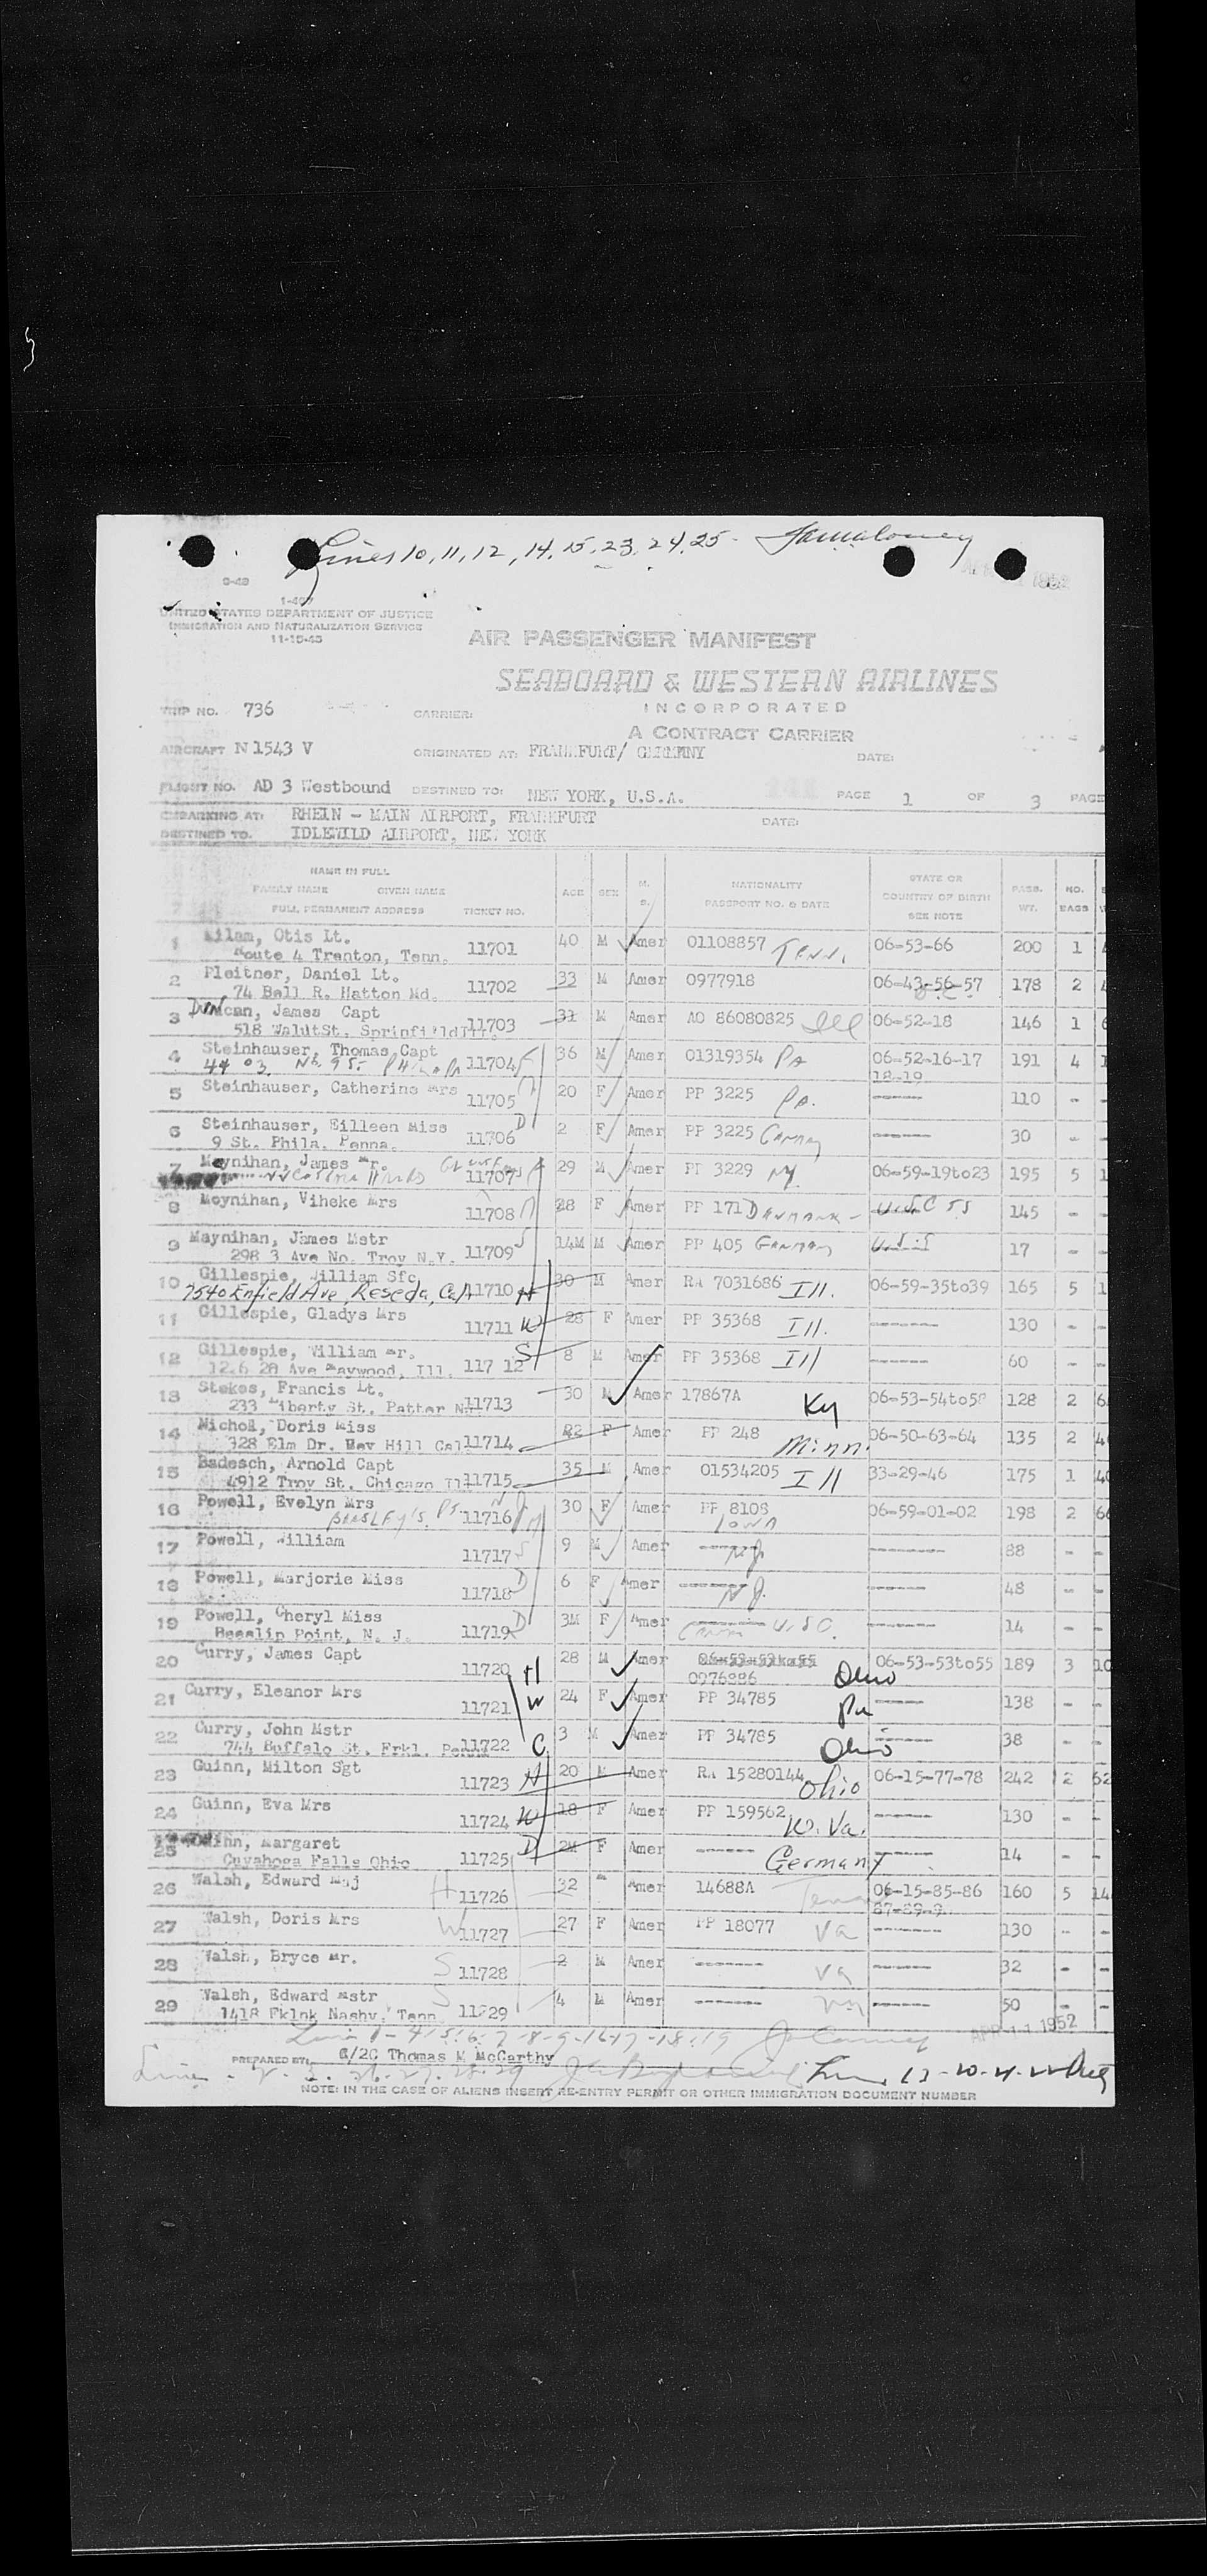 Lines 10, 11, 12, 14, 15, 23, 24, 25 -
1952
UNITED STATES DEPARTMENT OF JUSTICE
IMMIGRATION AND NATURALIZATION SERVICE
11-15-43
AIR PASSENGER MANIFEST
SEABOARD & WESTERN AIRLINES
INCORPORATED
A CONTRACT CARRIER
TRIP NO. 736 CARRIER:
AIRCRAFT N 1543 V ORIGINATED AT: FRANKFURT/ GERMANY DATE:
FLIGHT NO. AD 3 Westbound DESTINED TO: NEW YORK, U.S.A. PAGE 1 OF 3 PAGE
EMBARKING AT: RHEIN - MAIN AIRPORT, FRANKFURT DATE:
DESTINED TO. IDLEWILD AIRPORT, NEW YORK
NAME IN FULL
FAMILY NAME GIVEN NAME
FULL PERMANENT ADDRESS TICKET NO. AGE SEX M. S. NATIONALITY PASSPORT NO. & DATE STATE OR COUNTRY OF BIRTH SEE NOTE PASS. WT. NO. BAGS
1 Milam, Otis Lt. 11701 40 M Amer 01108857 TENN. 06-53-66 200 1
Route 4 Trenton, Tenn.
2 Pleitner, Daniel Lt. 11702 33 M Amer 0977918 06-43-56-57 178 2
74 Ball R. Hatton Md.
3 Duncan, James Capt 11703 31 M Amer AO 86080825 Ill 06-52-18 146 1 6
518 WalutSt.
4 Steinhauser, Thomas Capt 11704 36 M Amer 01319354 PA 06-52-16-17 191 4 1
18-19
5 Steinhauser, Catherine Mrs 11705 20 F Amer PP 3225 Pa. ----- 110 - -
6 Steinhauser, Eilleen Miss 11706 D 2 F Amer PP 3225 ----- 30 - -
9 St. Phila. Penna.
7 Moynihan, James Mr. 11707 29 M Amer PP 3229 NY. 06-59-19to23 195 5 1
8 Moynihan, Viheke Mrs 11708 28 F Amer PP 171 DENMARK - 145 - -
9 Maynihan, James Mstr 11709 S 14M M Amer PP 405 GERMANY 17 - -
298 3 Ave No. Troy N.Y.
10 Gillespie, William Sfc 11710 H 30 M Amer RA 7031686 Ill. 06-59-35to39 165 5 1
7540 Enfield Ave, Reseda, Cal
11 Gillespie, Gladys Mrs 11711 W 28 F Amer PP 35368 Ill. ------ 130 - -
12 Gillespie, William Mr. 117 12 S 8 M Amer PP 35368 Ill ------ 60 - -
12.6 28 Ave Maywood, Ill.
13 Stokes, Francis Lt. 11713 30 M Amer 17867A Ky 06-53-54to58 128 2 6
233 Liberty St. Patter
14 Nichol, Doris Miss 11714 22 F Amer PP 248 Minn. 06-50-63-64 135 2
328 Elm Dr. Hill Cal
15 Badesch, Arnold Capt 11715 35 M Amer 01534205 Ill 33-29-46 175 1
4912 Troy St. Chicago Ill
16 Powell, Evelyn Mrs 11716 30 F Amer PP 8108 IOWA 06-59-01-02 198 2
17 Powell, William 11717 S 9 M Amer N.J. ------- 88 - -
18 Powell, Marjorie Miss 11718 D 6 F Amer N.J. ------ 48 - -
19 Powell, Cheryl Miss 11719 D 3M F Amer ------ 14 - -
Beeslip Point, N. J.
20 Curry, James Capt 11720 H 28 M Amer 06-53-53to55 Ohio 06-53-53to55 189 3 10
0976886
21 Curry, Eleanor Mrs 11721 W 24 F Amer PP 34785 Pa ----- 138 - -
22 Curry, John Mstr 11722 C 3 M Amer PP 34785 Ohio ----- 38 - -
744 Buffalo St. Frkl.
23 Guinn, Milton Sgt 11723 H 20 M Amer RA 15280144 Ohio 06-15-77-78 242 2
24 Guinn, Eva Mrs 11724 W 18 F Amer PP 159562 W. Va. ----- 130 - -
25 Margaret 11725 D F Amer ------ Germany 14 - -
Cuyahoga Falls Ohio
26 Walsh, Edward Maj H 11726 32 Amer 14688A Tenn 06-15-85-86 160 5 14
27 Walsh, Doris Mrs W 11727 27 F Amer PP 18077 Va ------- 130 - -
28 Walsh, Bryce Mr. S 11728 2 M Amer ------- Va ------ 32 - -
29 Walsh, Edward Mstr S 11729 4 M Amer ------- ------ 50 - -
1418 Nashv. Tenn
APR 11 1952
PREPARED BY: Thomas M McCarthy
NOTE: IN THE CASE OF ALIENS INSERT RE-ENTRY PERMIT OR OTHER IMMIGRATION DOCUMENT NUMBER